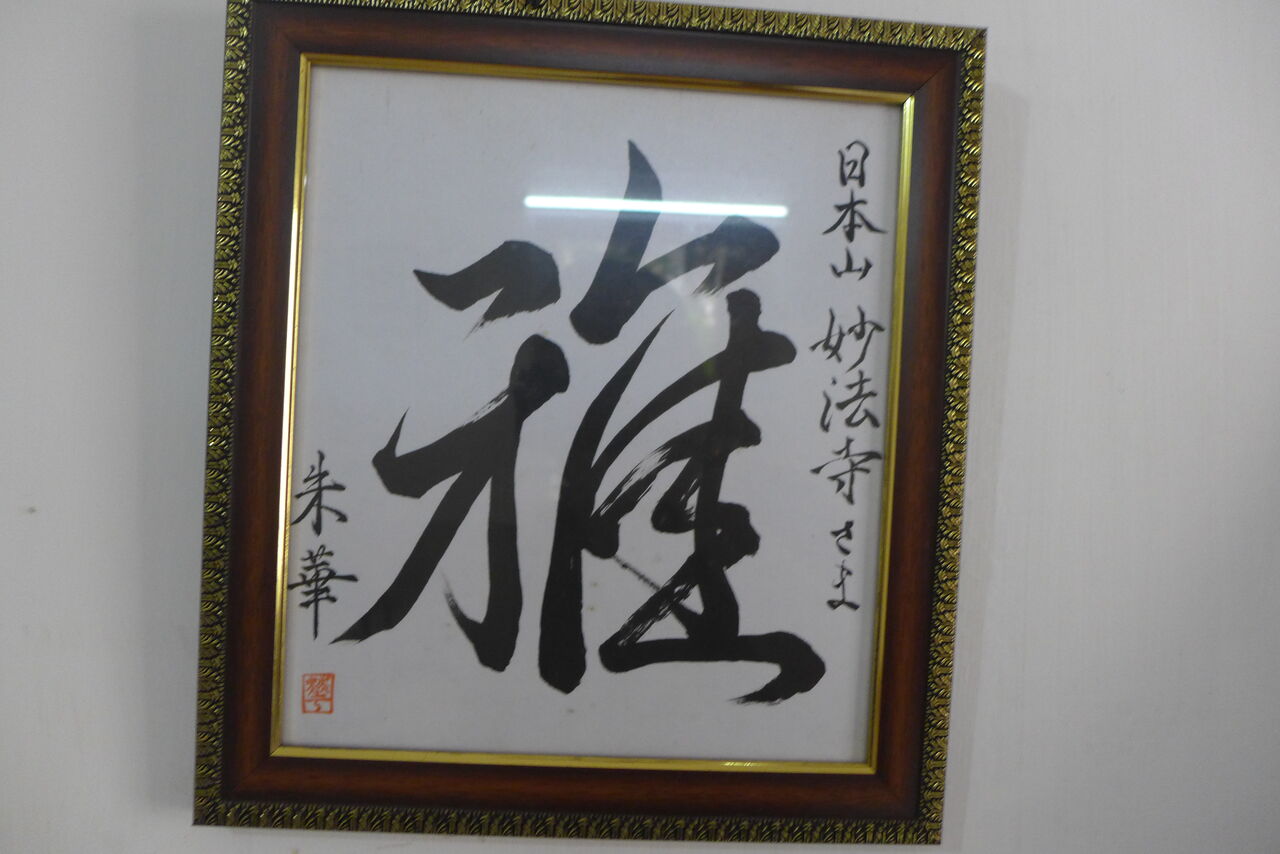 日本山妙法寺さま
雅
朱華